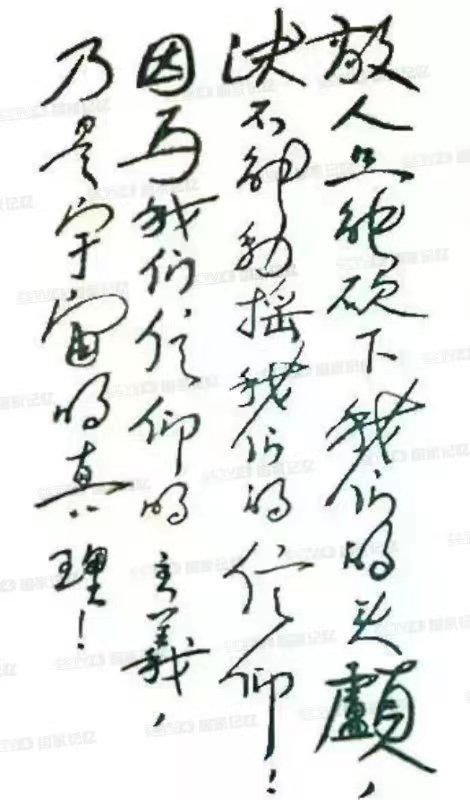 敵人只能砍下我们的头顱，
决不能动摇我们的信仰！
因为我们信仰的主義，
乃是宇宙的真理！